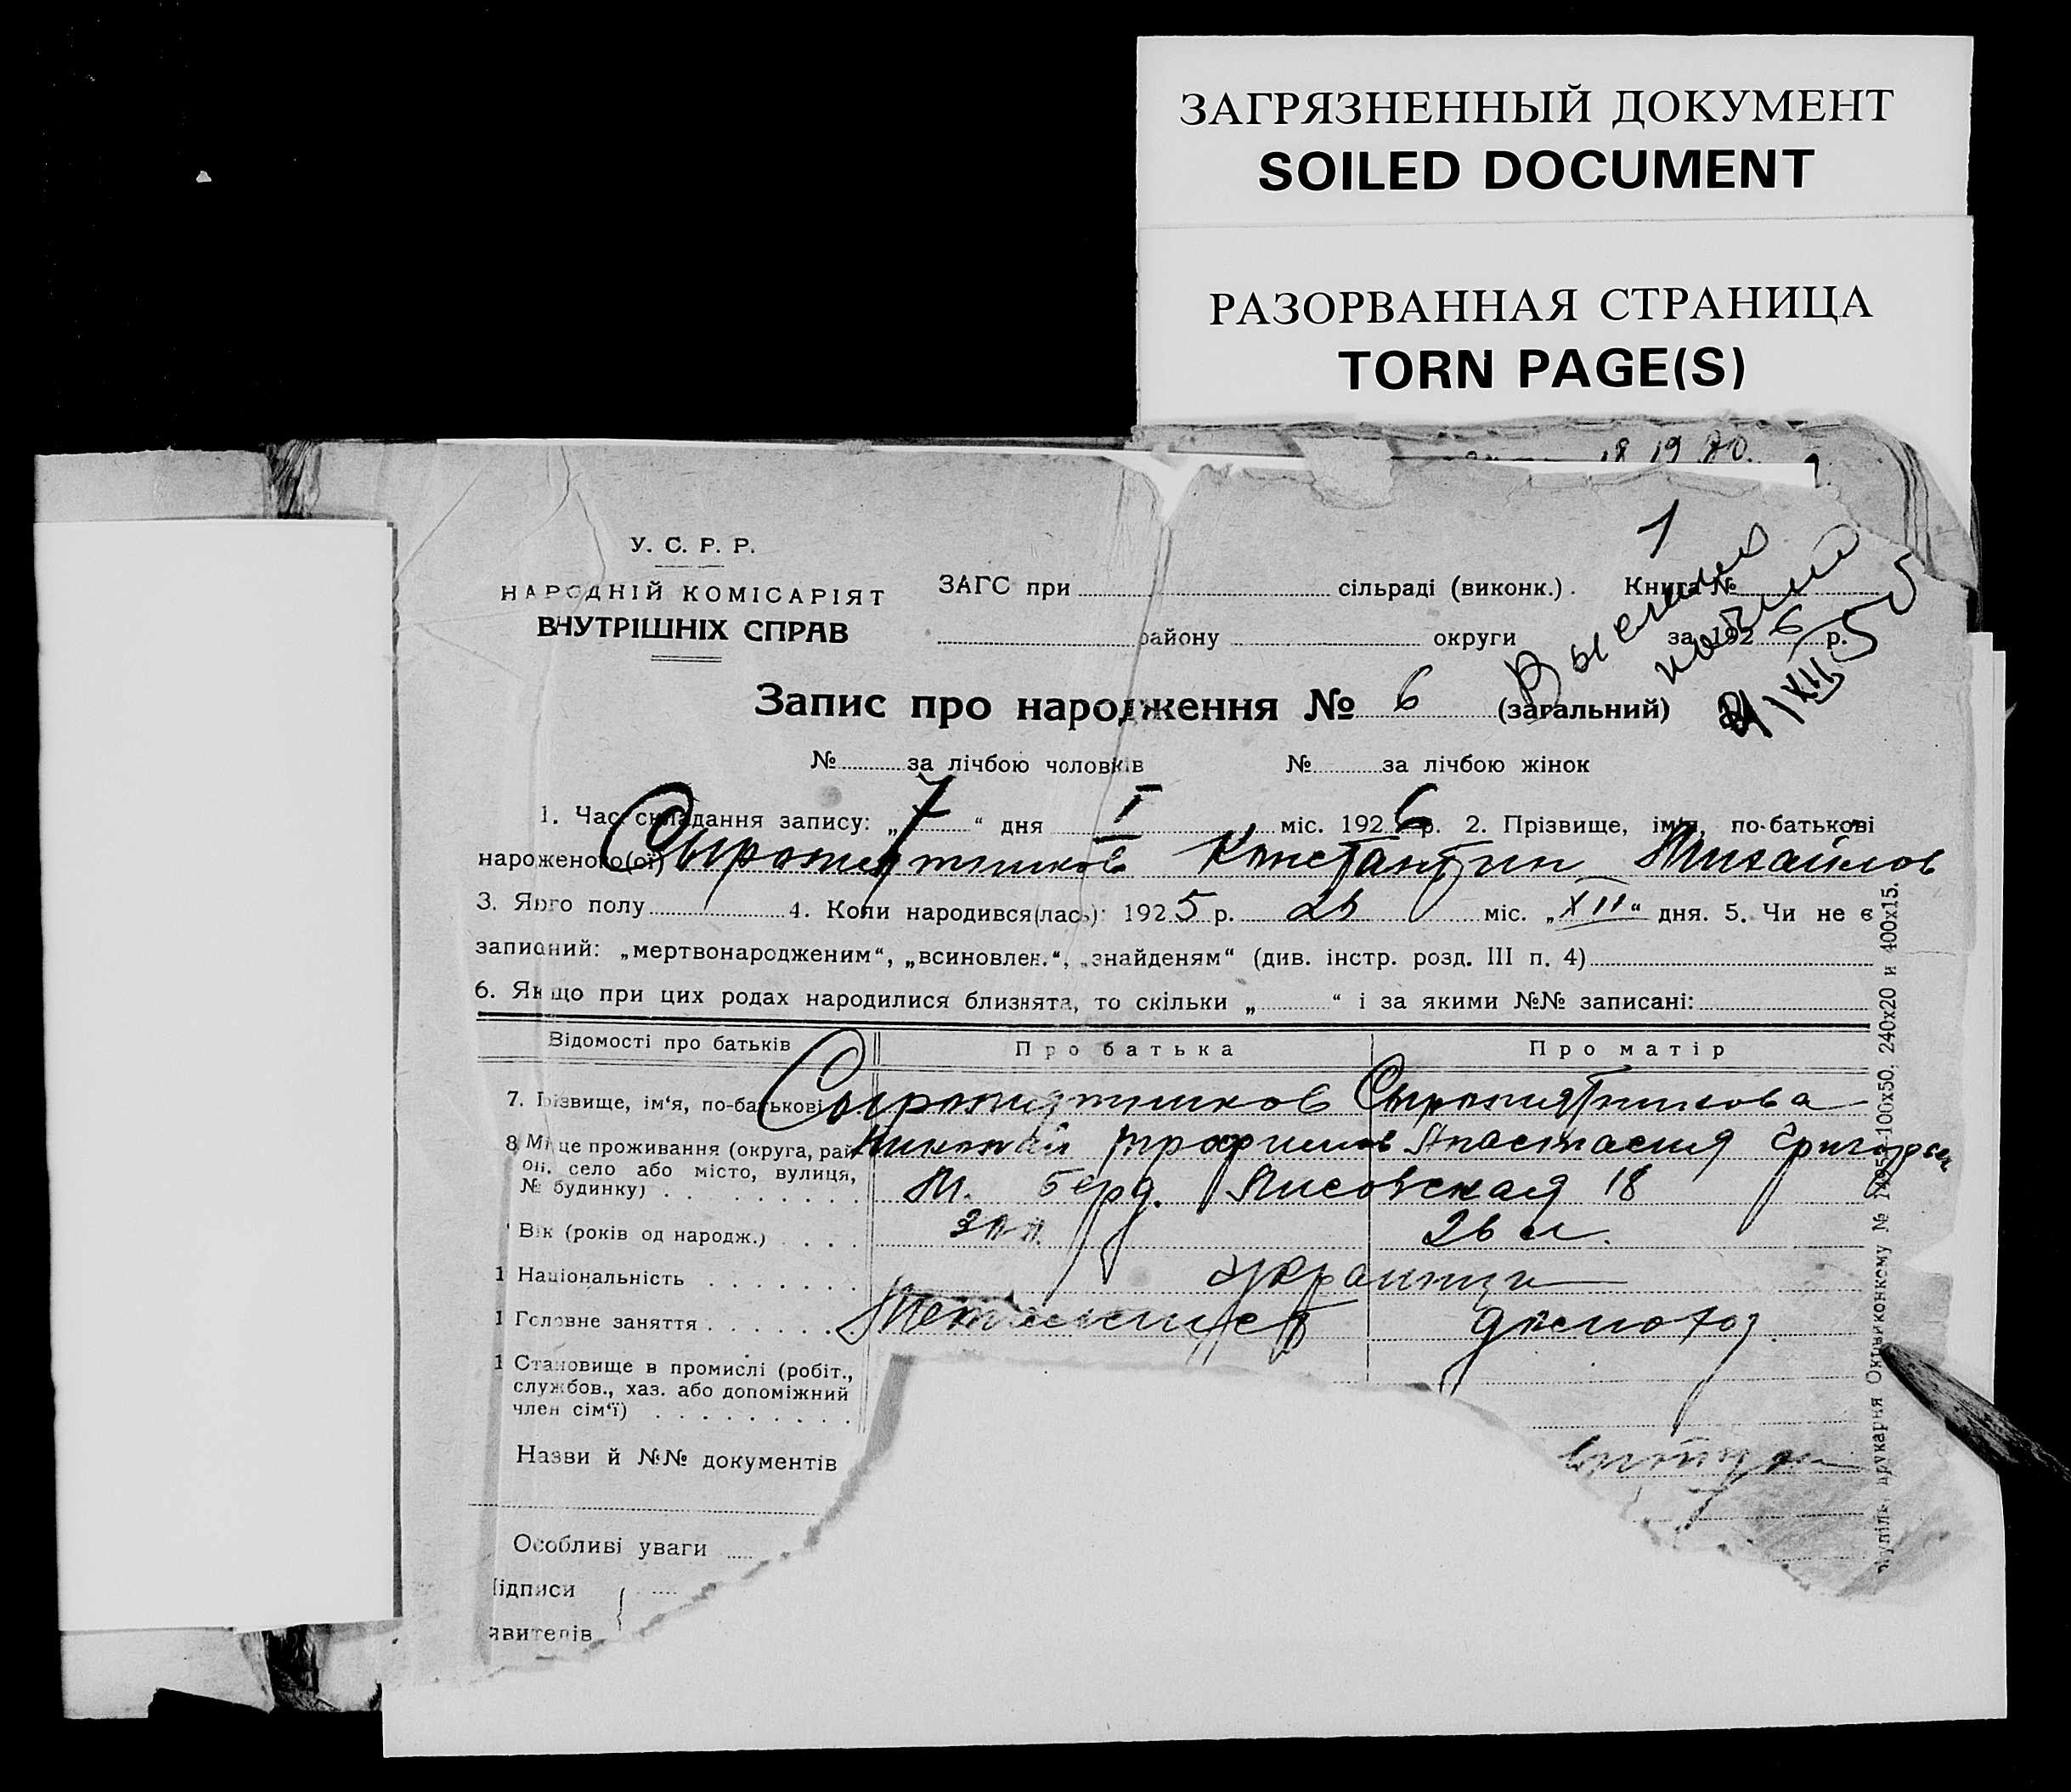 ЗАГРЯЗНЕННЫЙ ДОКУМЕНТ
SOILED DOCUMENT
РАЗОРВАННАЯ СТРАНИЦА
TORN PAGE(S)
18 19 20.
У. С. Р. Р.
НАРОДНІЙ КОМІСАРІЯТ
ВНУТРІШНІХ СПРАВ
ЗАГС при сільраді (виконк.). Книга №
району округи за 1926 р.
1
XII 55
Запис про народження № 6 (загальний)
№ за лічбою чоловіків № за лічбою жінок
1. Час складання запису: „7“ дня I міс. 1926 р. 2. Прізвище, ім'я, по-батькові
нароженого(ої) Сыропятников Константин Михайлов
3. Якого полу 4. Коли народився(лась): 1925 р. 26 міс. „XII“ дня. 5. Чи не є
записаний: „мертвонародженим“, „всиновлен.“, „знайденям“ (див. інстр. розд. III п. 4)
6. Якщо при цих родах народилися близнята, то скільки „ “ і за якими №№ записані:
Відомості про батьків Про батька Про матір
7. Прізвище, ім‘я, по-батькові Сыропятников Сыропятникова
8 Місце проживання (округа, рай
он, село або місто, вулиця,
№ будинку)
Трофимов Анастасия Григорьев
М. Берд. Лисовская 18
Вік (років од народж.) 26 л.
1 Національність украинци
1 Головне заняття домохоз.
1 Становище в промислі (робіт.,
службов., хаз. або допоміжний
член сім‘ї)
Назви й №№ документів
Особливі уваги
Підписи
явителів
друкарня Окрвиконкому № 1495—100х50, 240х20 и 400х15.